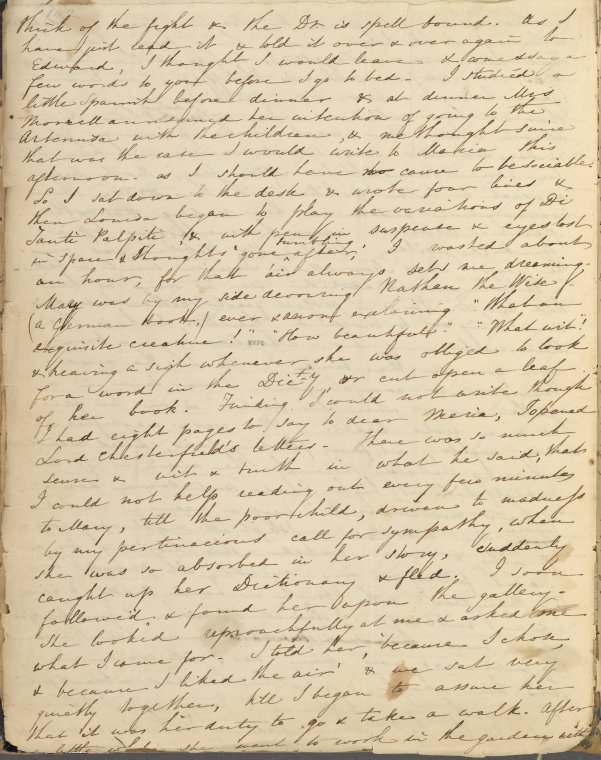 think of the fight & the Dr is spell bound. As I
have just read it & told it over & over again to
Edward, I thought I would leave & come & say a
few words to you before I go to bed. I studied a
little Spanish before dinner & at dinner Mrs
Morrell announced her intention of going to the
Artemisa with the children, & me thought since
that was the case I would write to Maria this
afternoon. as I should have no cause to be sociable.
So I sat down to the desk & wrote four lines &
then Louisa began to play the variations of Di
Tanti Palpiti, & with pen in suspense & eyes lost
in space & thoughts gone rambling after, I wasted about
an hour, for that air always sets me dreaming.
Mary was by my side devouring Nathan the Wise
(a German book,) ever & anon exclaiming "What an
exquisite creature!" "How beautiful" "What wit"!
NYPL
& heaving a sigh whenever she was obliged to look
for a word in the Dicty, or cut open a leaf
of her book. Finding I could not write though
I had eight pages to say to dear Maria, I opened
Lord Chesterfield's letters. There was so much
sense & wit & truth in what he said, that
I could not help reading out every few minutes
to Mary, till the poor child, driven to madness
by my pertinacious call for sympathy, when
she was so absorbed in her story, suddenly
caught up her Dictionary & fled. I soon
followed & found her upon the gallery.
She looked reproachfully at me & asked me
what I came for. I told her, 'because I chose,
& because I liked the air' & we sat very
quietly together, till I began to assure her
that it was her duty to go & take a walk. After
a little while she went to work in the garden with